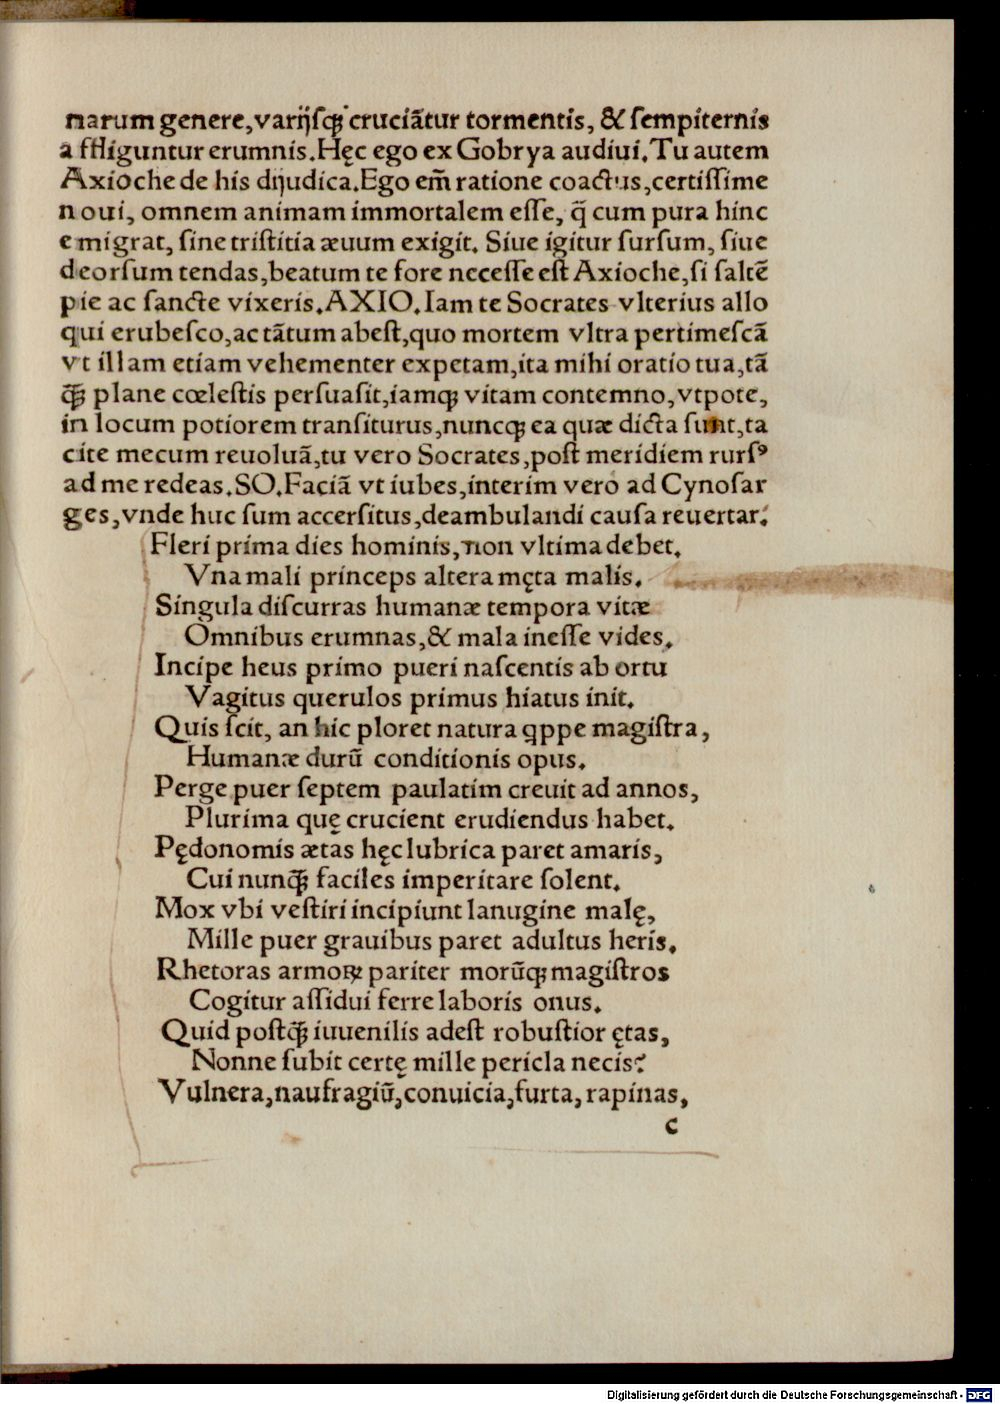 narum genere,varijſqꝫ cruciãtur tormentis, & ſempiternis
affliguntur erumnis.Hęc ego ex Gobrya audiui.Tu autem
Axioche de his dijudica.Ego em̃ ratione coactus,certiſſime
noui, omnem animam immortalem eſſe, q̃ cum pura hinc
emigrat, ſine triſtitia æuum exigit. Siue igitur ſurſum, ſiue
deorſum tendas,beatum te fore neceſſe eſt Axioche,ſi ſaltẽ
pie ac ſancte vixeris.AXIO.Iam te Socrates vlterius allo
qui erubeſco,ac tãtum abeſt,quo mortem vltra pertimeſcã
vt illam etiam vehementer expetam,ita mihi oratio tua,tã
q̃ꝫ plane cœleſtis perſuaſit,iamqꝫ vitam contemno,vtpote,
in locum potiorem tranſiturus,nuncqꝫ ea quæ dicta ſunt,ta
cite mecum reuoluã,tu vero Socrates,poſt meridiem rurſꝰ
ad me redeas.SO.Faciã vt iubes,interim vero ad Cynoſar
ges,vnde huc ſum accerſitus,deambulandi cauſa reuertar.
Fleri prima dies hominis,non vltima debet.
Vna mali princeps altera męta malis.
Singula diſcurras humanæ tempora vitæ
Omnibus erumnas,& mala ineſſe vides.
Incipe heus primo pueri naſcentis ab ortu
Vagitus querulos primus hiatus init.
Quis ſcit, an hic ploret natura qꝓpe magiſtra,
Humanæ durũ conditionis opus.
Perge puer ſeptem paulatim creuit ad annos,
Plurima quę crucient erudiendus habet.
Pędonomis ætas hęc lubrica paret amaris,
Cui nunq̃ꝫ faciles imperitare ſolent.
Mox vbi veſtiri incipiunt lanugine malę,
Mille puer grauibus paret adultus heris.
Rhetoras armoꝝ pariter morũqꝫ magiſtros
Cogitur aſſidui ferre laboris onus.
Quid poſtq̃ꝫ iuuenilis adeſt robuſtior ętas,
Nonne ſubit certę mille pericla necis?
Vulnera,naufragiũ,conuicia,furta, rapinas,
c
Digitalisierung gefördert durch die Deutsche Forschungsgemeinschaft - DFG